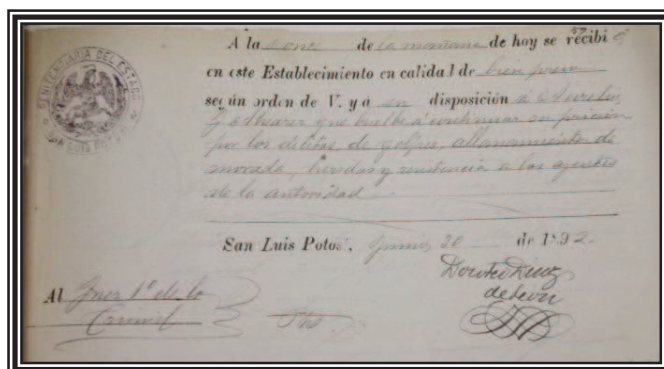 PENITENCIARIA DEL ESTADO
SAN LUIS POTOSI
A la once de la mañana de hoy se recibió
en este Establecimiento en calidad de bien preso
según orden de V. y á su disposición á Aurelio
que buelbe á continuar su pricion
por los delitos de golpes, allanamiento de
morada, heridas y resistencia a los agentes
de la autoridad
San Luis Potosí, Junio 30 de 1892.
Al Juez 1º de lo
Criminal